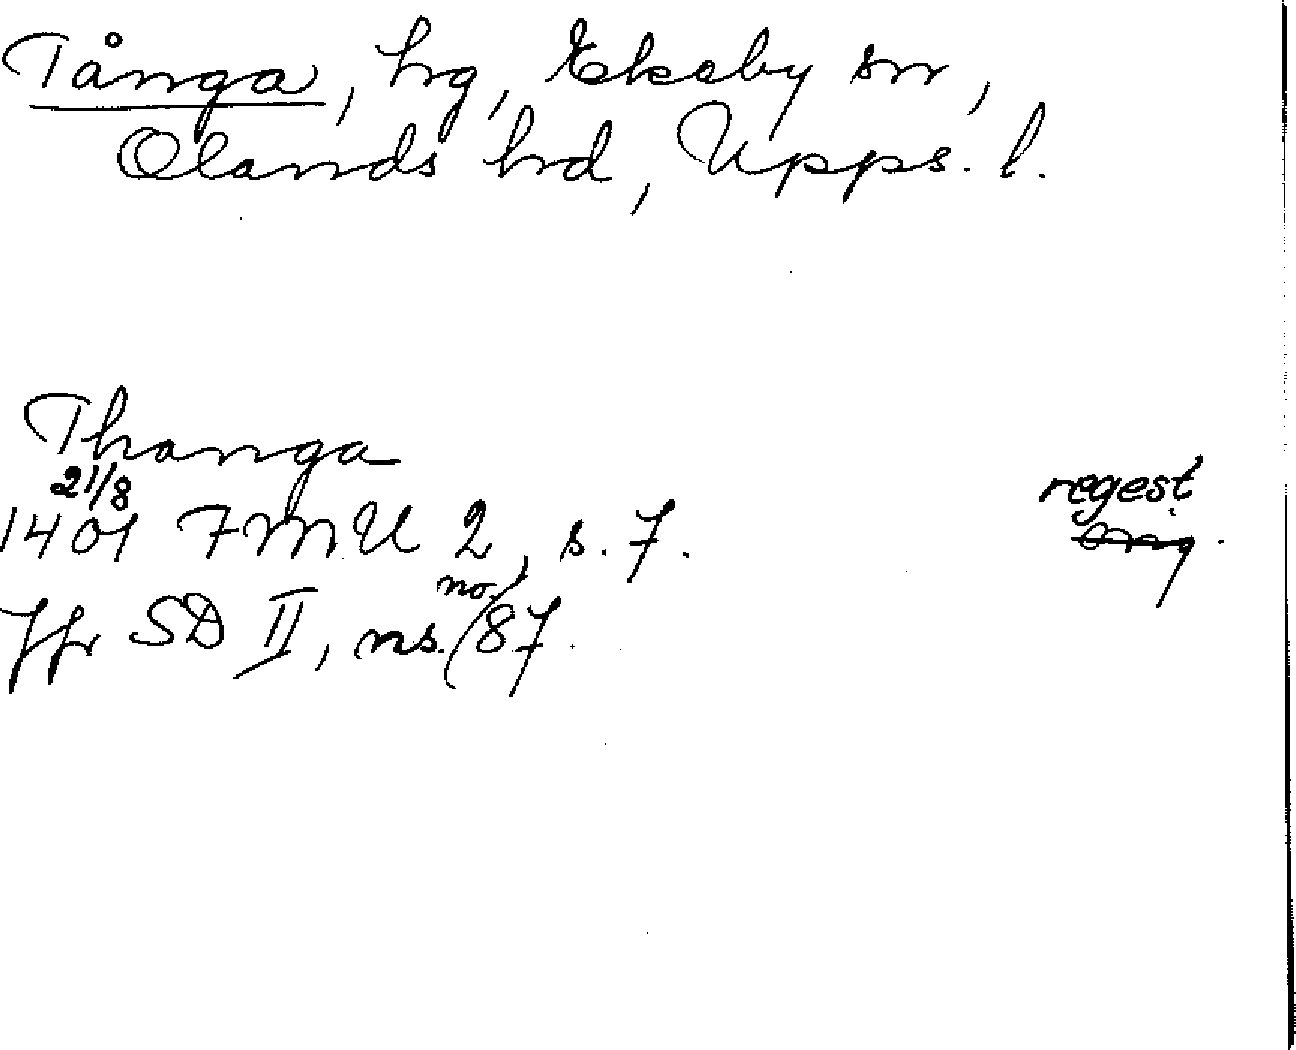 Tånga, hg, Ekeby sn,
Olands hd, Upps. l.
Thanga
21/8
1401 FMU 2, s. 7.
regest
Jfr SD II, ns. no. 87.